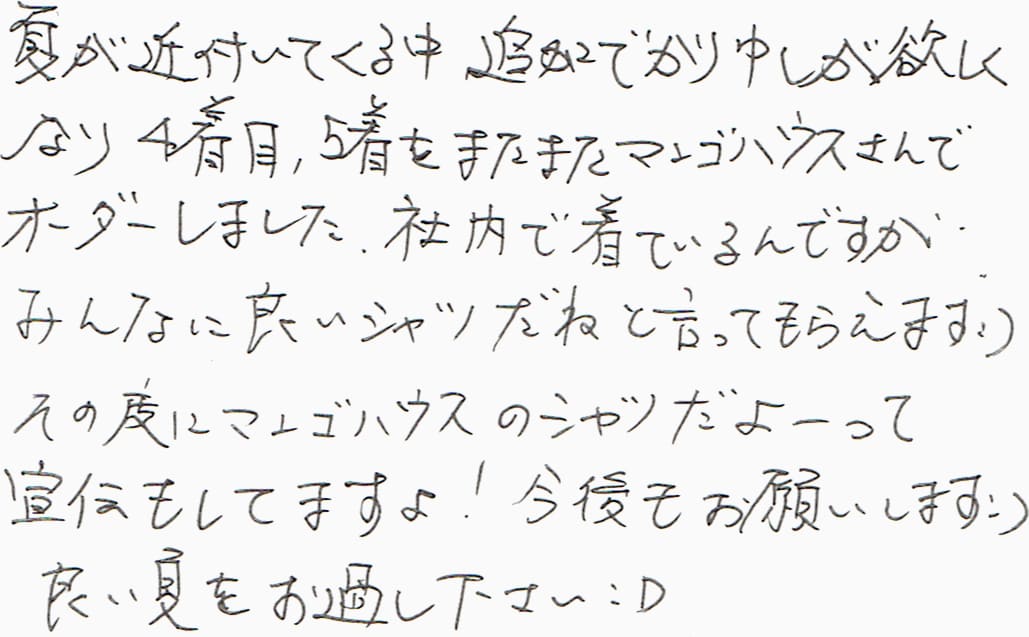 夏が近付いてくる中 追加でかりゆしが欲しく
なり 4着目,5着をまたまたマンゴハウスさんで
オーダーしました.社内で着ているんですが.
みんなに良いシャツだねと言ってもらえます:)
その度にマンゴハウスのシャツだよーって
宣伝もしてますよ！今後もお願いします:)
良い夏をお過し下さい:D